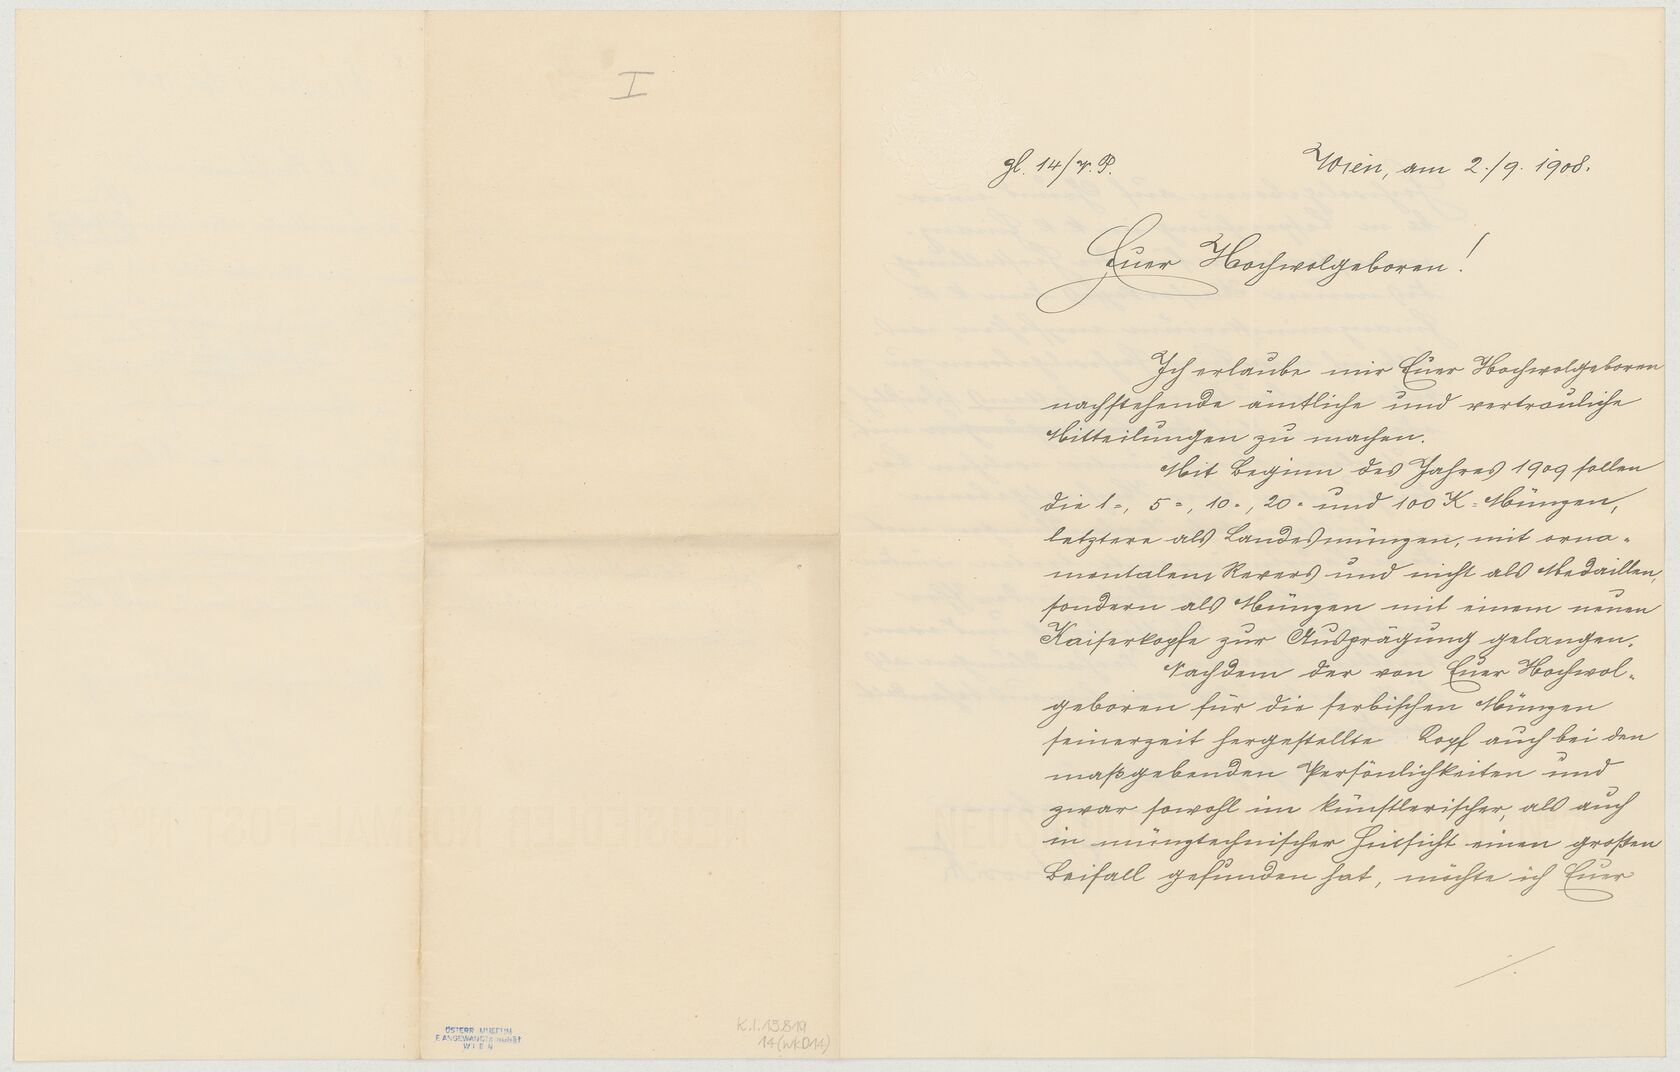 I
ÖSTERR. MUSEUM
F. ANGEWANDTE KUNST
WIEN
K.I.15.819
14 (wk014)
gl. 14/v. P.
Wien, am 2./9. 1908.
Euer Hochwolgeboren!
Ich erlaube mir Euer Hochwolgeboren
nachstehende ämtliche und vertrauliche
Mitteilungen zu machen.
Mit Beginn des Jahres 1909 sollen
die 1-, 5-, 10-, 20- und 100 K-Münzen,
letztere als Landesmünzen, mit orna-
mentalem Revers und nicht als Medaillen,
sondern als Münzen mit einem neuen
Kaiserkopfe zur Ausprägung gelangen.
Nachdem der von Euer Hochwol-
geboren für die serbischen Münzen
seinerzeit hergestellte Kopf auch bei den
maßgebenden Persönlichkeiten und
zwar sowohl im künstlerischer, als auch
in münztechnischer Hinsicht einen großen
Beifall gefunden hat, möchte ich Euer
./.